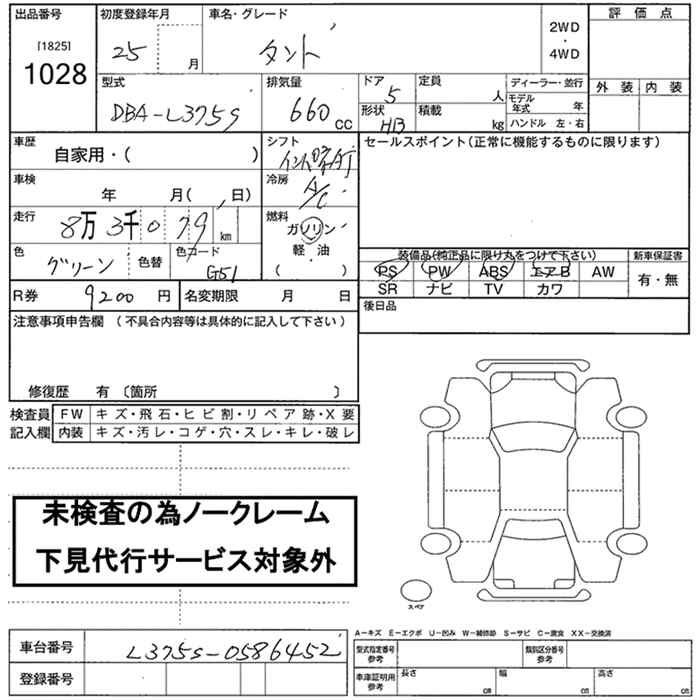 出品番号 初度登録年月 車名・グレード 評価点
[1825] 1028 25 月 タント 2WD・4WD 外装 内装
型式 排気量 ドア 定員 ディーラー・並行
DBA-L375S 660 CC 5 人 モデル年式 年
形状 積載 ハンドル 左・右
HB kg
車歴 シフト セールスポイント(正常に機能するものに限ります)
自家用・( )
車検 冷房
年 月( 、日) A/C
走行 燃料
8万 3千 0 79 km ガソリン・軽・油 ( )
色 色替 色コード
グリーン G51
装備品(純正品に限り丸をつけて下さい) 新車保証書
PS PW ABS エアB AW 有・無
SR ナビ TV カワ
R券 9200 円 名変期限 月 日
後日品
注意事項申告欄 (不具合内容等は具体的に記入して下さい)
修復歴 有 〔箇所 〕
検査員 FW キズ・飛石・ヒビ割・リペア跡・X要
記入欄 内装 キズ・汚レ・コゲ・穴・スレ・キレ・破レ
未検査の為ノークレーム
下見代行サービス対象外
スペア
A−キズ E−エクボ U−凹み W−補修跡 S−サビ C−腐食 XX−交換済
車台番号 L375S-0586452
登録番号
型式指定番号 参考 類別区分番号 参考
車庫証明用 参考 長さ cm 幅 cm 高さ cm